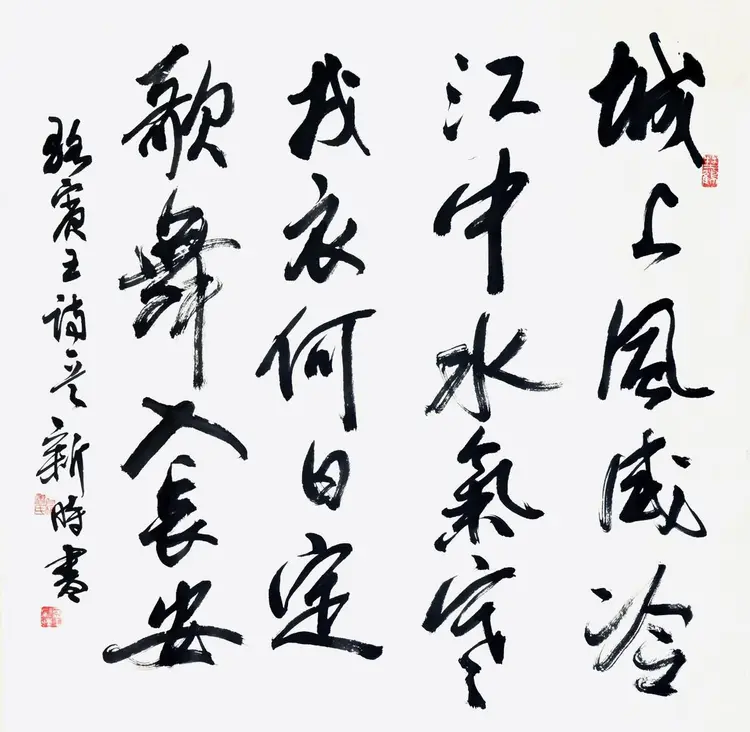 城上風威冷
江中水氣寒
戎衣何日定
歌舞入長安
駱賓王詩 新時書